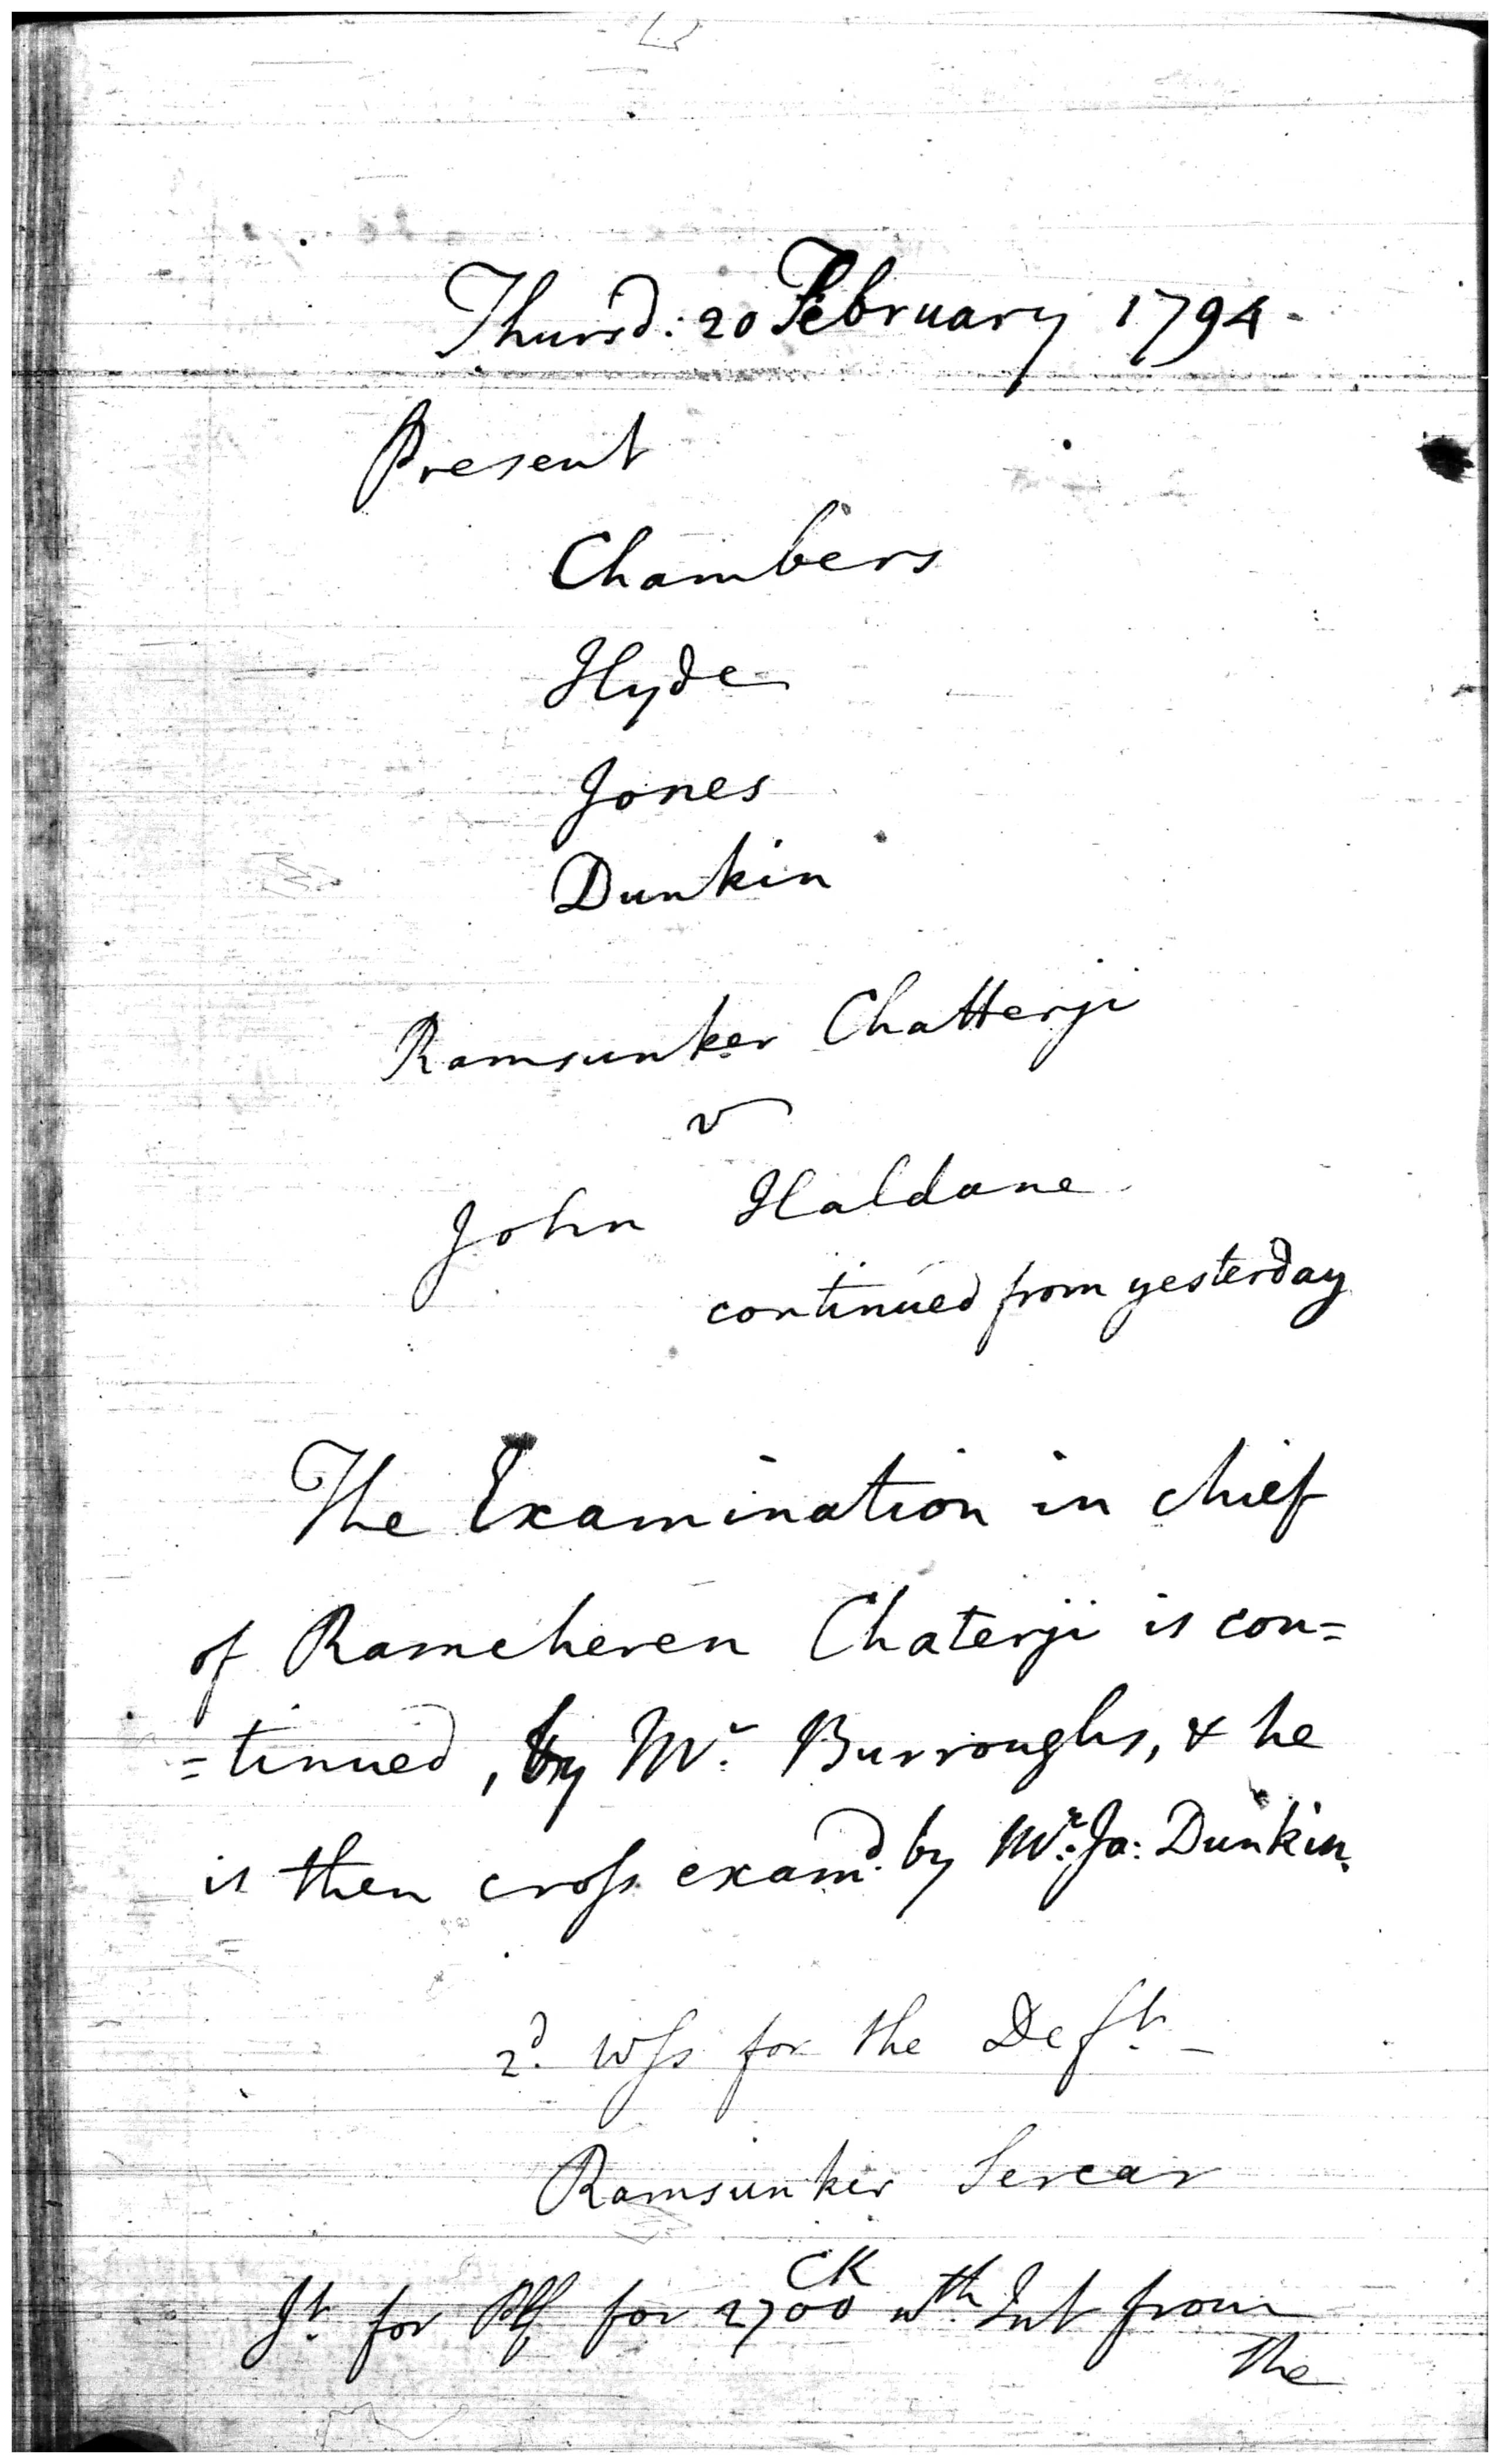 Thursd: 20 February 1794-
Present
Chambers
Hyde
Jones
Dunkin
Ramsunker Chatterji
v
John Haldane
continued from yesterday
The Examination in chief
of Ramcheren Chaterji is con=
=tinued, by Mr. Burroughs, & he
is then cross examd. by Mr. Ja: Dunkin.
2d. Wss for the Deft. -
Ramsunker Sercar
CK
Jt. for Plf for 2700 wth. Int from
the